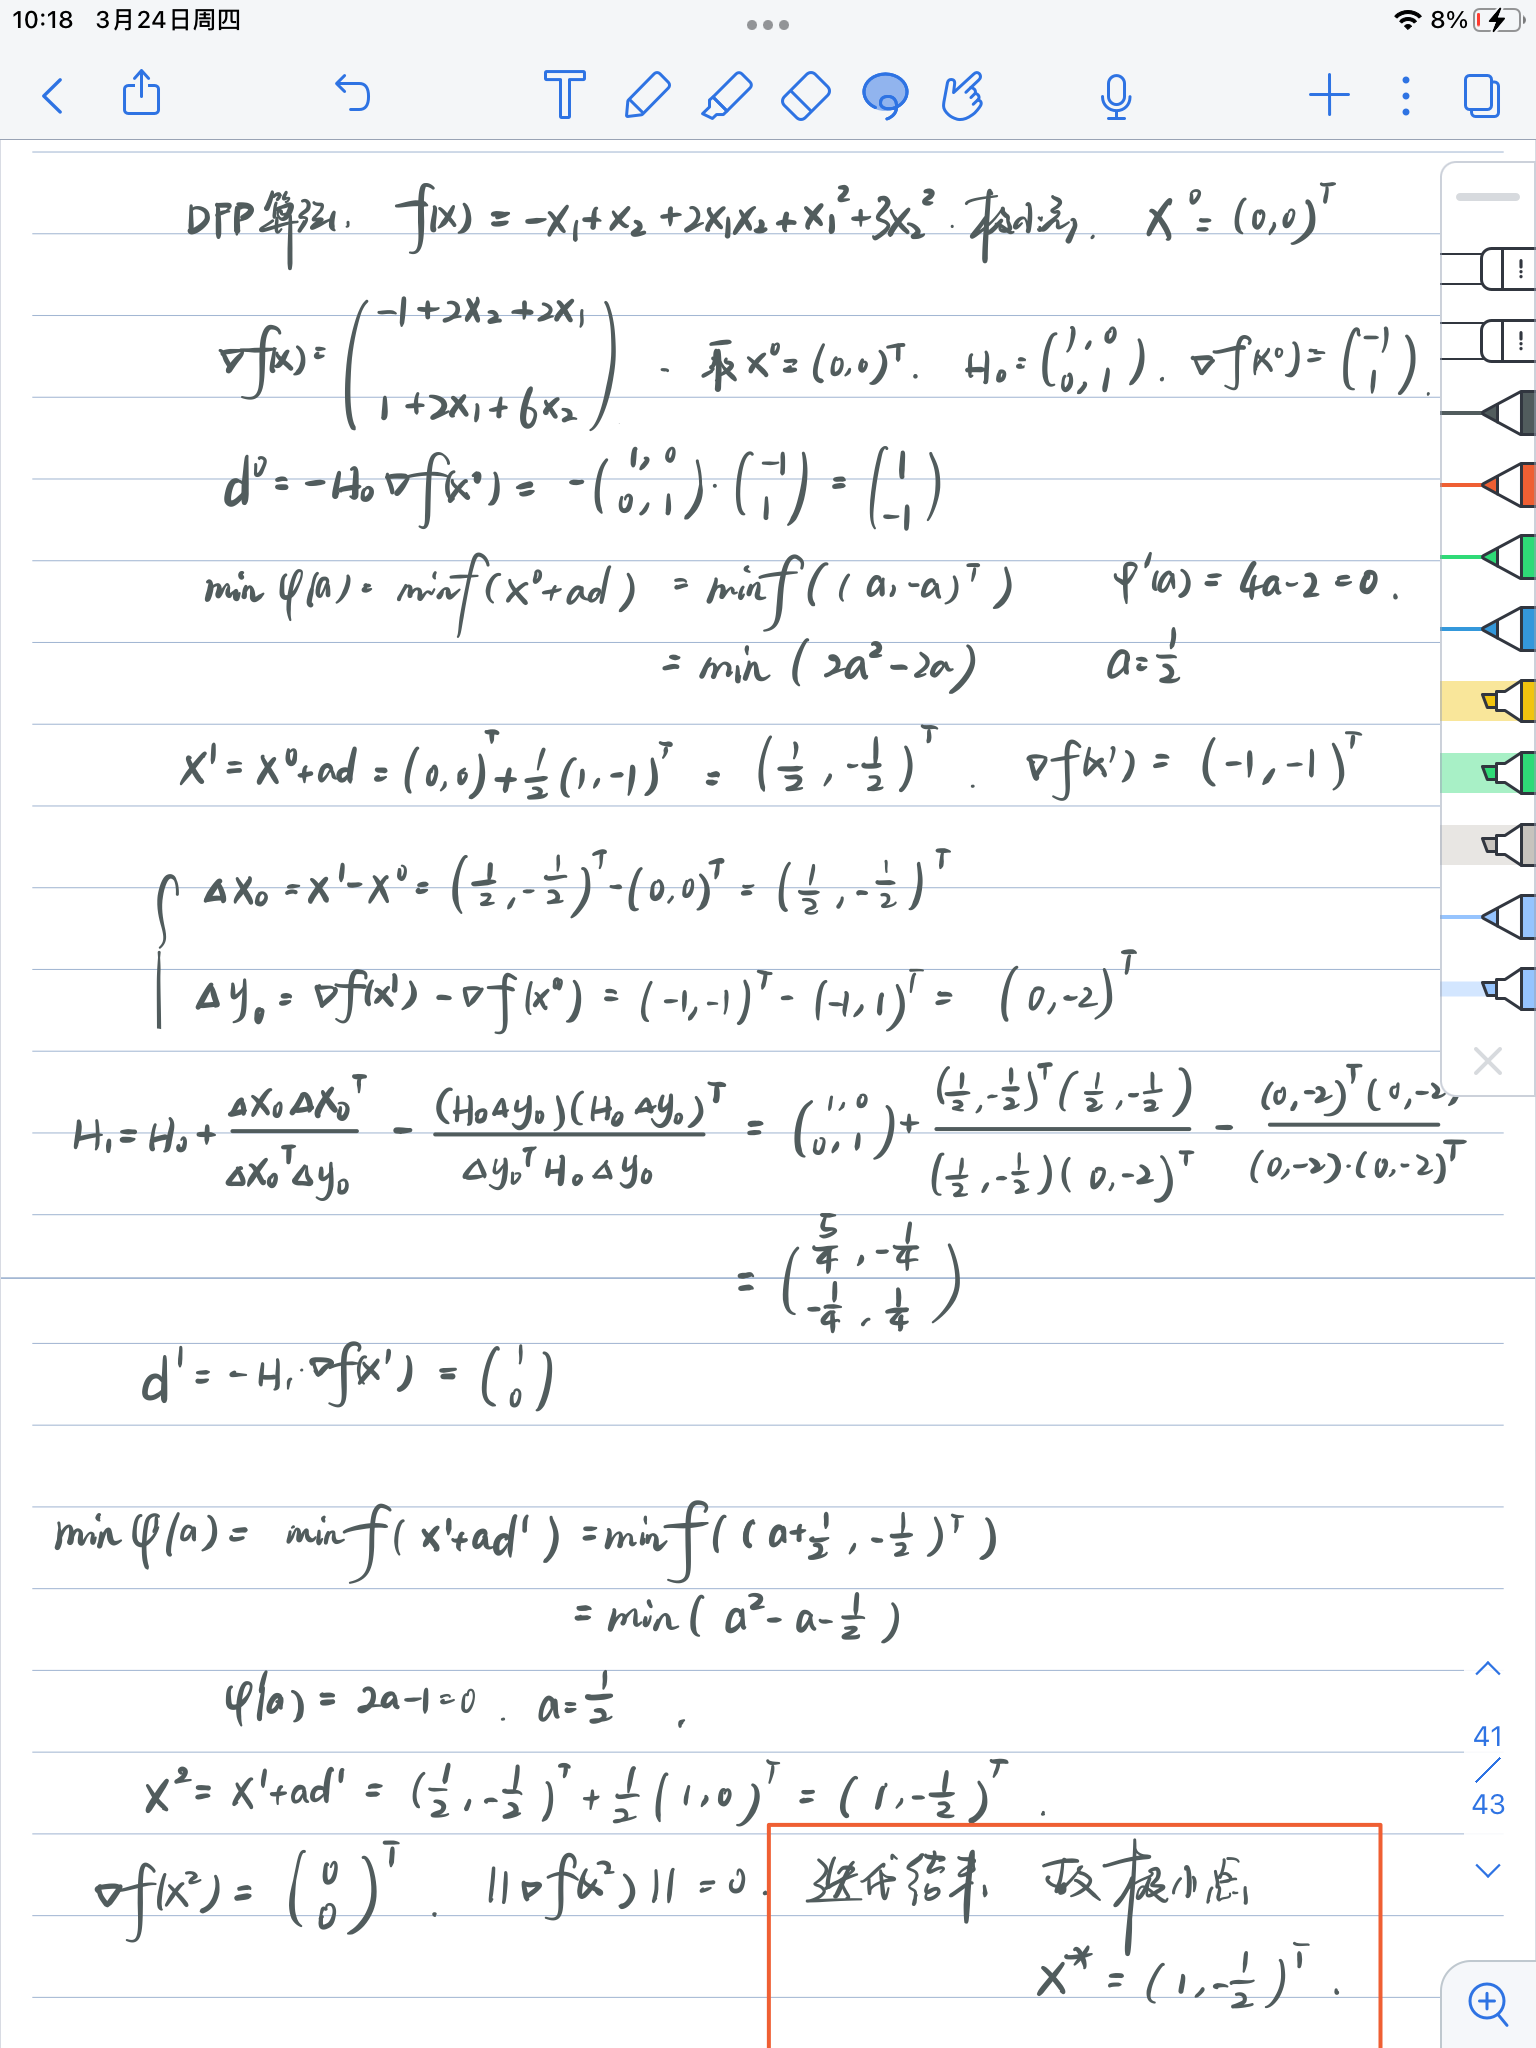 10:18 3月24日周四 8%
DFP算法. f(x) = -x₁+x₂+2x₁x₂+x₁²+3x₂². 极小点. x⁰=(0,0)ᵀ
∇f(x)=(-1+2x₂+2x₁ 1+2x₁+6x₂). 取x⁰=(0,0)ᵀ. H₀=(1,0 0,1). ∇f(x⁰)=(-1 1).
d⁰=-H₀∇f(x⁰)=-(1,0 0,1)·(-1 1)=(1 -1)
min φ(a)=min f(x⁰+ad)=min f((a,-a)ᵀ) φ'(a)=4a-2=0.
=min(2a²-2a) a=1/2
x¹=x⁰+ad=(0,0)ᵀ+1/2(1,-1)ᵀ=(1/2,-1/2)ᵀ. ∇f(x¹)=(-1,-1)ᵀ
Δx₀=x¹-x⁰=(1/2,-1/2)ᵀ-(0,0)ᵀ=(1/2,-1/2)ᵀ
Δy₀=∇f(x¹)-∇f(x⁰)=(-1,-1)ᵀ-(-1,1)ᵀ=(0,-2)ᵀ
H₁=H₀+Δx₀Δx₀ᵀ/Δx₀ᵀΔy₀-(H₀Δy₀)(H₀Δy₀)ᵀ/Δy₀ᵀH₀Δy₀=(1,0 0,1)+(1/2,-1/2)ᵀ(1/2,-1/2)/(1/2,-1/2)(0,-2)ᵀ-(0,-2)ᵀ(0,-2)/(0,-2)·(0,-2)ᵀ
=(5/4,-1/4 -1/4,1/4)
d¹=-H₁·∇f(x¹)=(1 0)
min φ(a)=min f(x¹+ad¹)=min f((a+1/2,-1/2)ᵀ)
=min(a²-a-1/2)
φ'(a)=2a-1=0. a=1/2.
41
x²=x¹+ad¹=(1/2,-1/2)ᵀ+1/2(1,0)ᵀ=(1,-1/2)ᵀ.
43
∇f(x²)=(0 0)ᵀ. ||∇f(x²)||=0. 迭代结束, 取极小点,
x*=(1,-1/2)ᵀ.